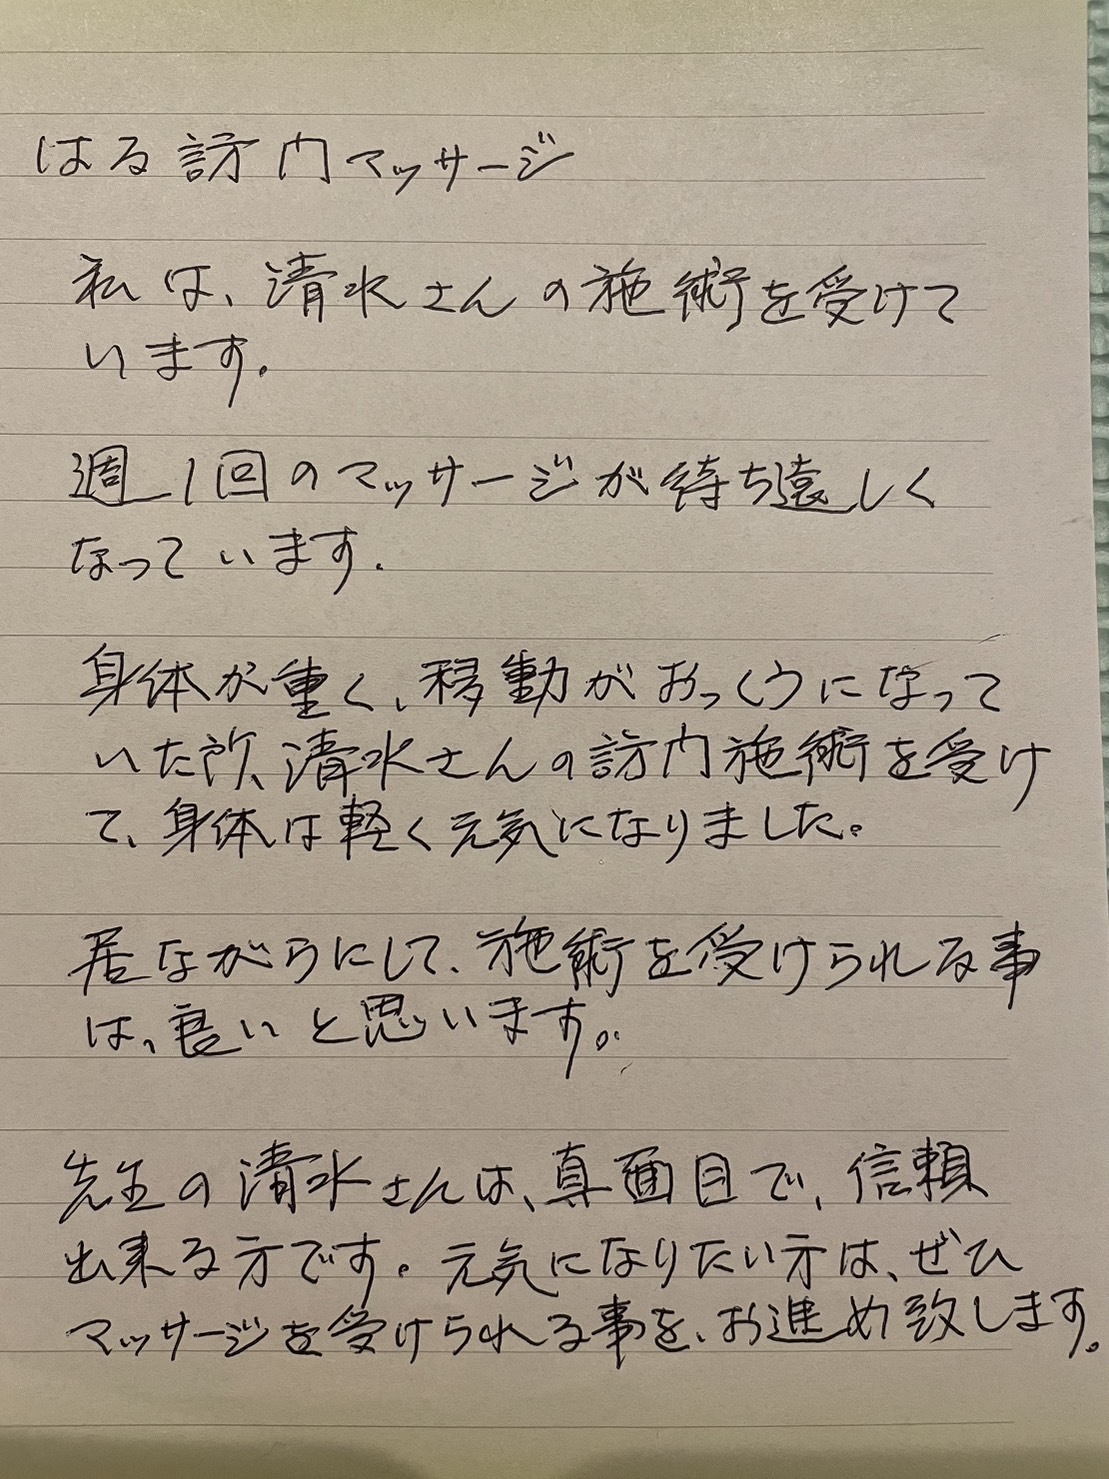 はる訪門マッサージ
私は、清水さんの施術を受けて
います。
週1回のマッサージが待ち遠しく
なっています。
身体が重く、移動がおっくうになって
いた所、清水さんの訪門施術を受け
て、身体は軽く元気になりました。
居ながらにして、施術を受けられる事
は、良いと思います。
先生の清水さんは、真面目で、信頼
出来る方です。元気になりたい方は、ぜひ
マッサージを受けられる事を、お進め致します。